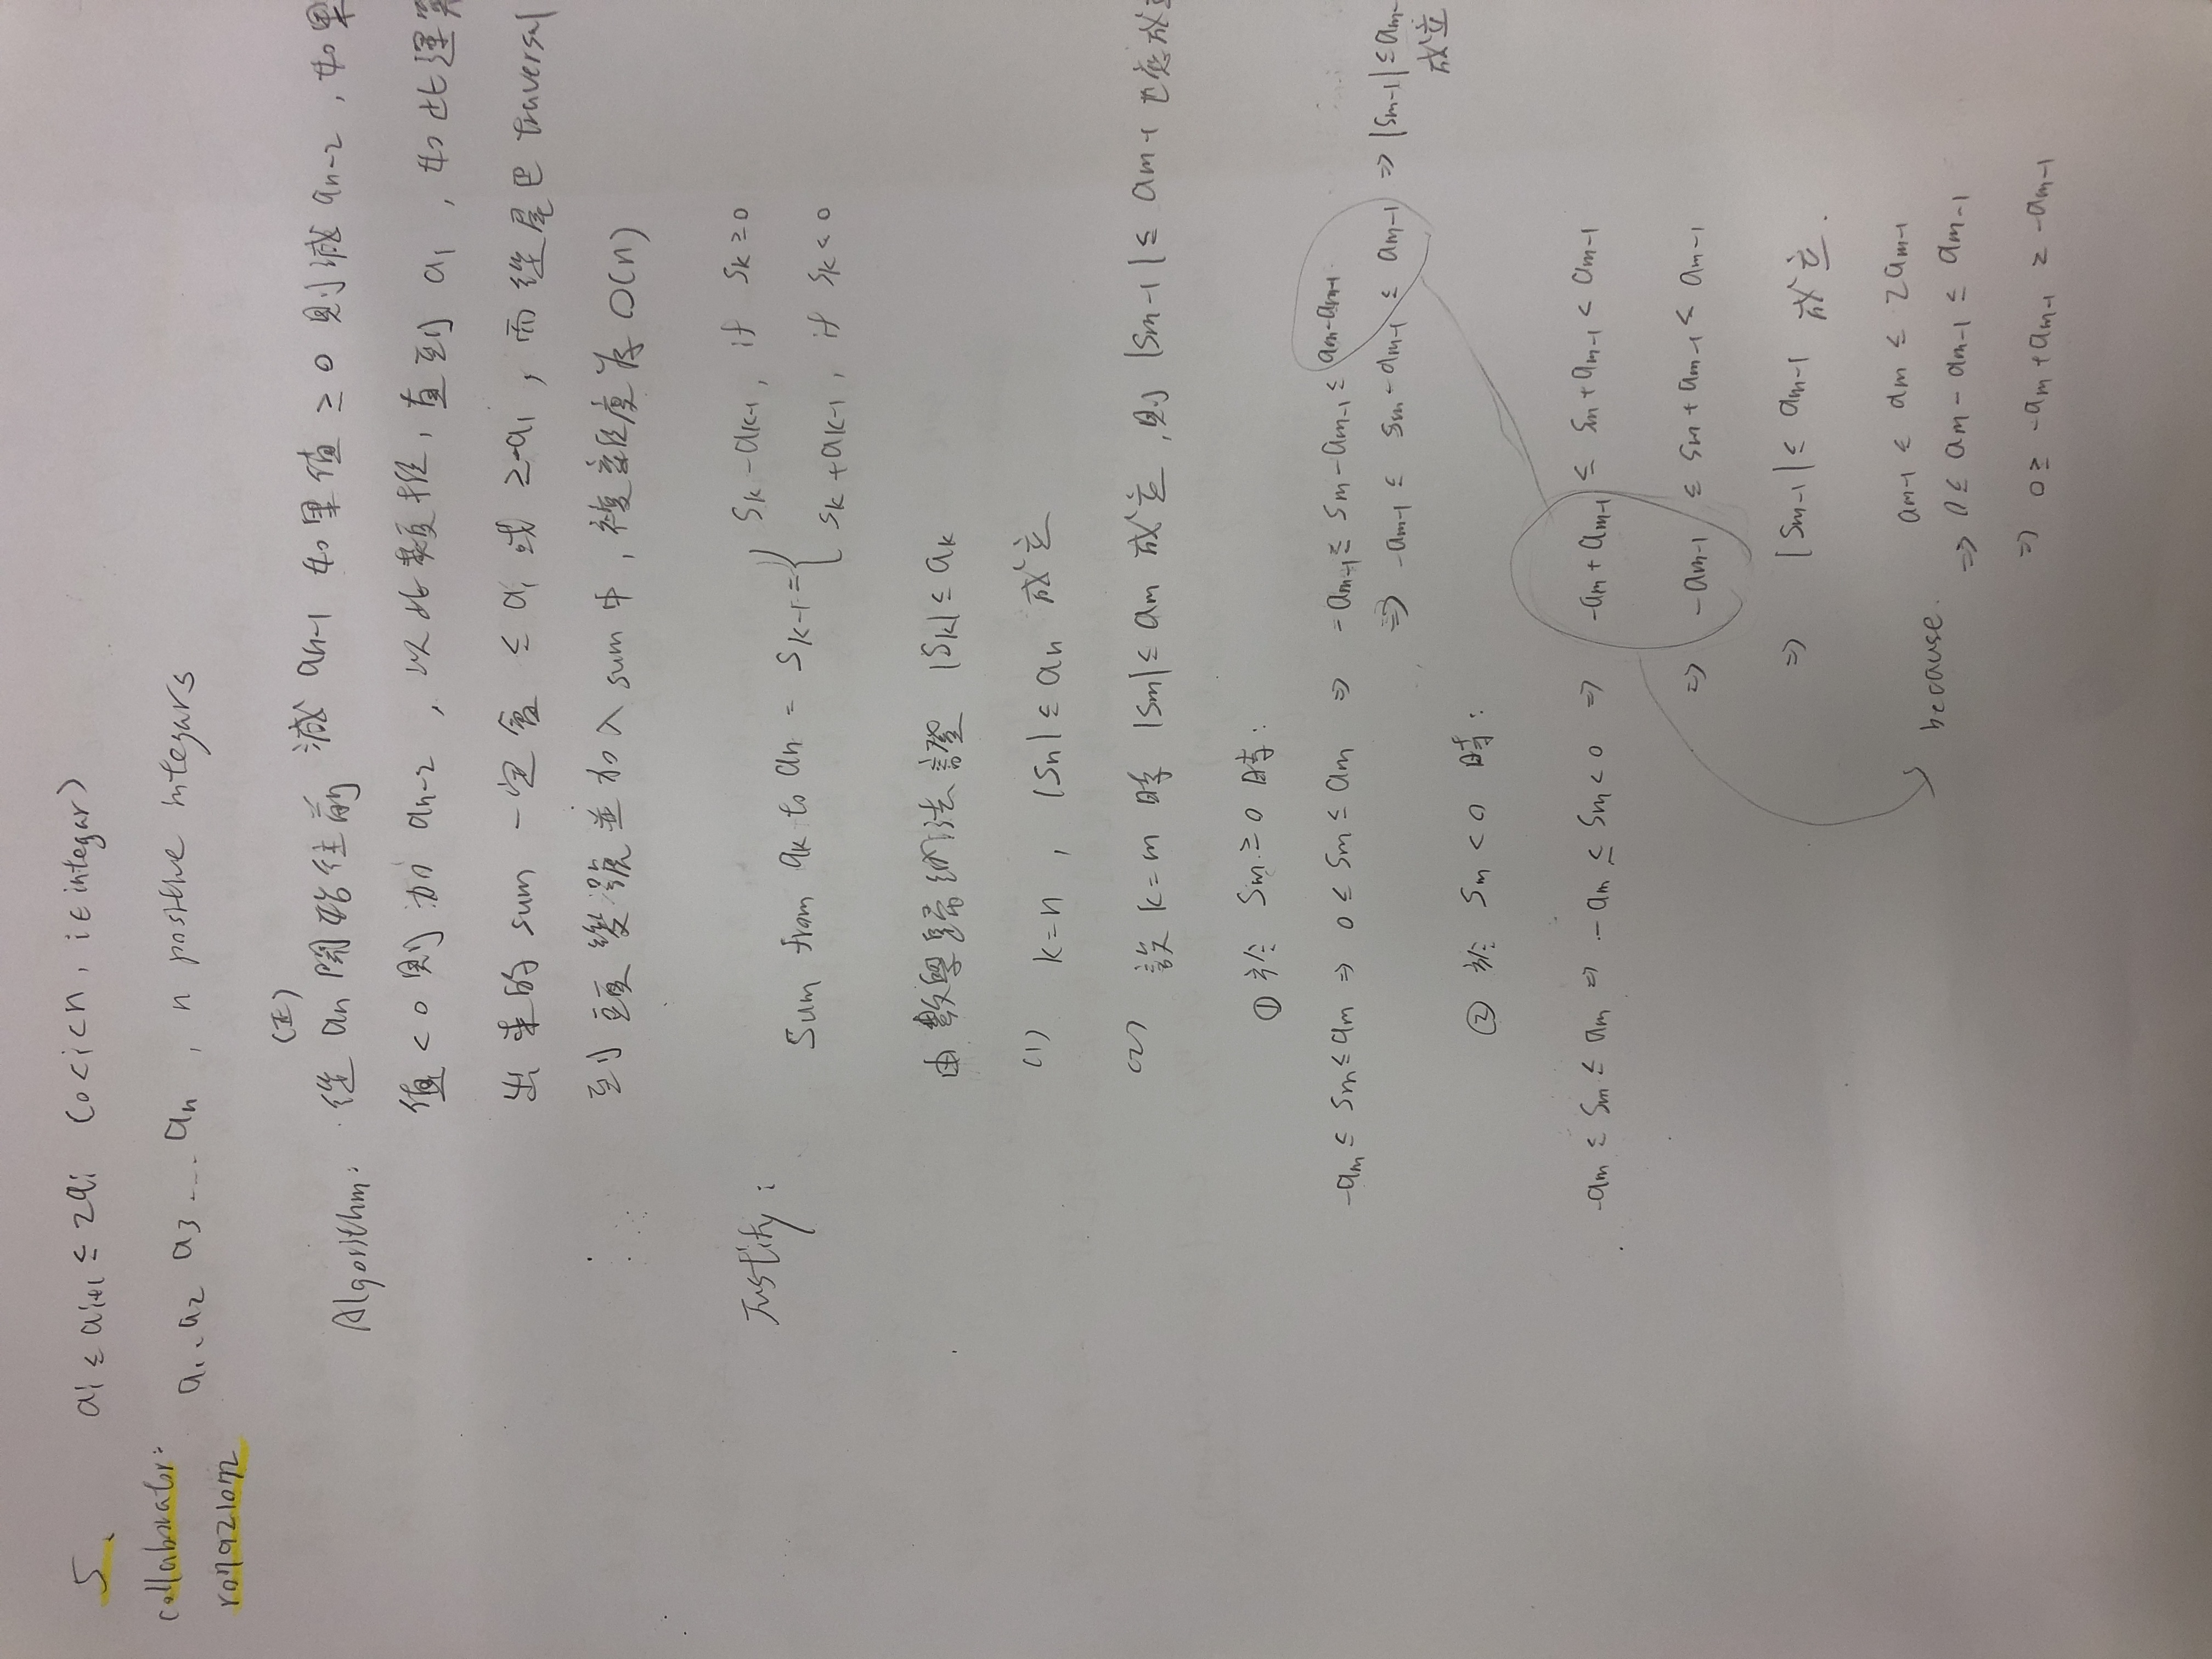 5、 ai ≤ ai+1 ≤ 2ai (0<i<n, i∈integar)
collaborator:
a1、a2 a3 .... an , n positive integars
(正)
Algorithm: 從 an 開始往前 減 an-1 如果值 ≥ 0 則減 an-2 , 如果
值 < 0 則 加 an-2 , 以此類推, 直到 a1 , 如此運算
出來的 sum 一定會 ≤ a1 或 ≥ -a1 , 而從尾巴 traversal
到頭 變號並加入 sum 中, 複雜度為 O(n)
Justify: Sum from ak to an = Sk-1 = { Sk - ak-1, if Sk ≥ 0
Sk + ak-1, if Sk < 0
由數學歸納法證 |Sk| ≤ ak
(1) k=n , |Sn| ≤ an 成立
(2) 設 k=m 時 |Sm| ≤ am 成立 , 則 |Sm-1| ≤ am-1 也應成立
① 於 Sm ≥ 0 時:
-am ≤ Sm ≤ am ⇒ 0 ≤ Sm ≤ am ⇒ -am-1 ≤ Sm - am-1 ≤ am - am-1
⇒ -am-1 ≤ Sm - am-1 ≤ am-1 ⇒ |Sm-1| ≤ am-
成立
② 於 Sm < 0 時:
-am ≤ Sm ≤ am ⇒ -am ≤ Sm < 0 ⇒ -am + am-1 ≤ Sm + am-1 < am-1
⇒ -am-1 ≤ Sm + am-1 < am-1
⇒ |Sm-1| ≤ am-1 成立.
am-1 ≤ am ≤ 2am-1
because.
⇒ 0 ≤ am - am-1 ≤ am-1
⇒ 0 ≥ -am + am-1 ≥ -am-1